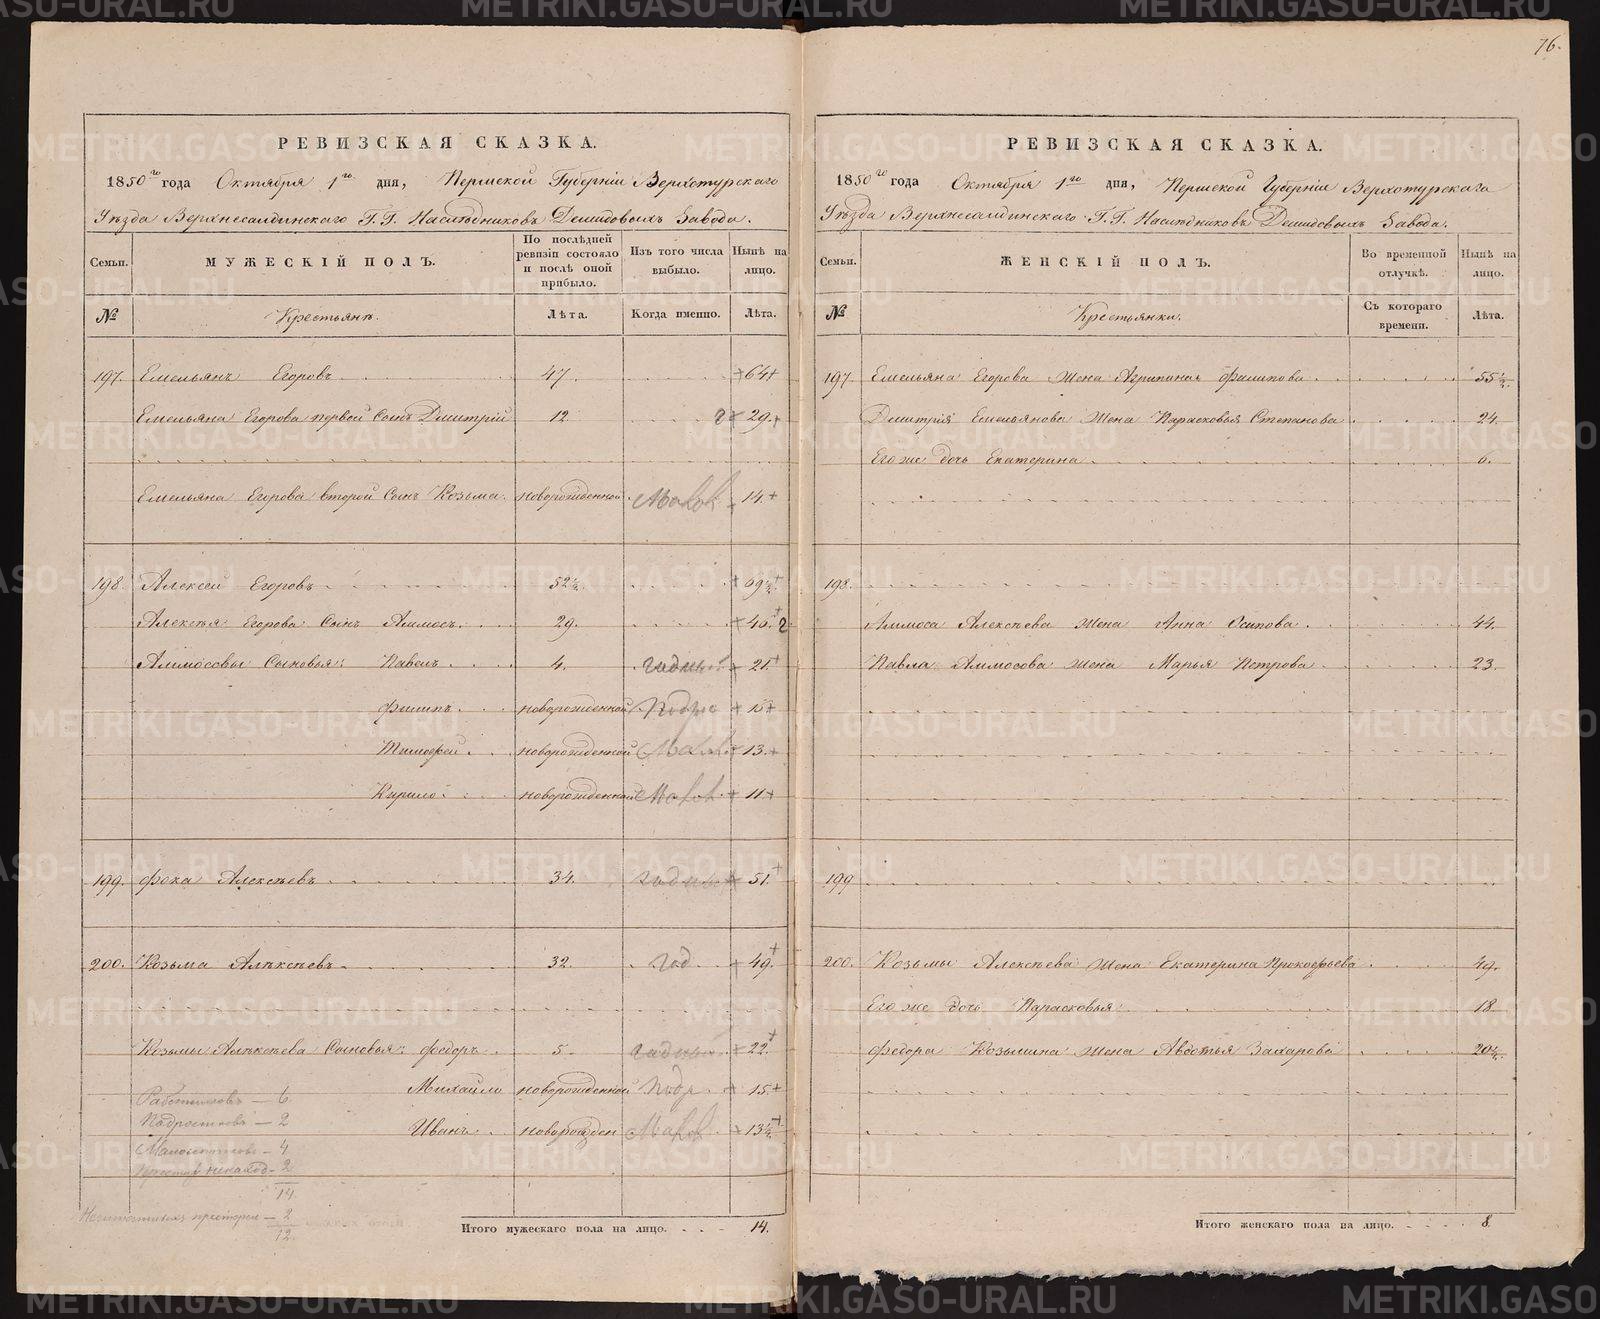 76.
РЕВИЗСКАЯ СКАЗКА.
1850го года Октября 1го дня, Пермской Губерніи Верхотурскаго
Уѣзда Верхнесалдинскаго Г.Г. Наслѣдниковъ Демидовыхъ Завода.
Семьи.
МУЖЕСКІЙ ПОЛЪ.
По послѣдней ревизіи состояло и послѣ оной прибыло.
Изъ того числа выбыло.
Нынѣ на лицо.
№
Крестьянъ.
Лѣта.
Когда именно.
Лѣта.
197. Емельянъ Егоровъ 47. +64+
Емельяна Егорова первой Сынъ Дмитрій 12 29+
Емельяна Егорова второй Сынъ Козьма новорожденной Малол 14+
198. Алексей Егоровъ 52½
Алексѣя Егорова Сынъ Аммосъ 29. 2
Аммосовы Сыновья: Павелъ 4. годный + 21+
Филипъ новорожденной Подро + 15+
Тимофей новорожденной Малол 13+
Кирило новорожденной Малол + 11+
199. Фока Алексѣевъ 34. годный + 51+
200. Козьма Алѣксѣевъ 32. год + 49+
Козьмы Алѣксѣева Сыновья: Федоръ 5. годный + 22+
Михайло новорожденной Подр + 15+
Иванъ новорожден Малол + 13½+
Работниковъ — 6
Подростковъ — 2
Малолетнихъ — 4
2
14
— 2
12.
Итого мужескаго пола на лицо. 14.
РЕВИЗСКАЯ СКАЗКА.
1850го года Октября 1го дня, Пермской Губерніи Верхотурскаго
Уѣзда Верхнесалдинскаго Г.Г. Наслѣдниковъ Демидовыхъ Завода.
Семьи.
ЖЕНСКІЙ ПОЛЪ.
Во временной отлучкѣ.
Нынѣ на лицо.
№
Крестьянки.
Съ котораго времени.
Лѣта.
197. Емельяна Егорова Жена Агрипина Филипова 55½
Дмитрія Емельянова Жена Парасковья Степанова 24.
Его же дочь Екатерина 6.
198.
Аммоса Алексѣева Жена Анна Осипова 44.
Павла Аммосова Жена Марья Петрова 23.
199
200. Козьмы Алексѣева Жена Екатерина Прокофьева 49.
Его же дочь Парасковья 18
Федора Козьмина Жена Авдотья Захарова 20½
Итого женскаго пола на лицо. 8.
METRIKI.GASO-URAL.RU